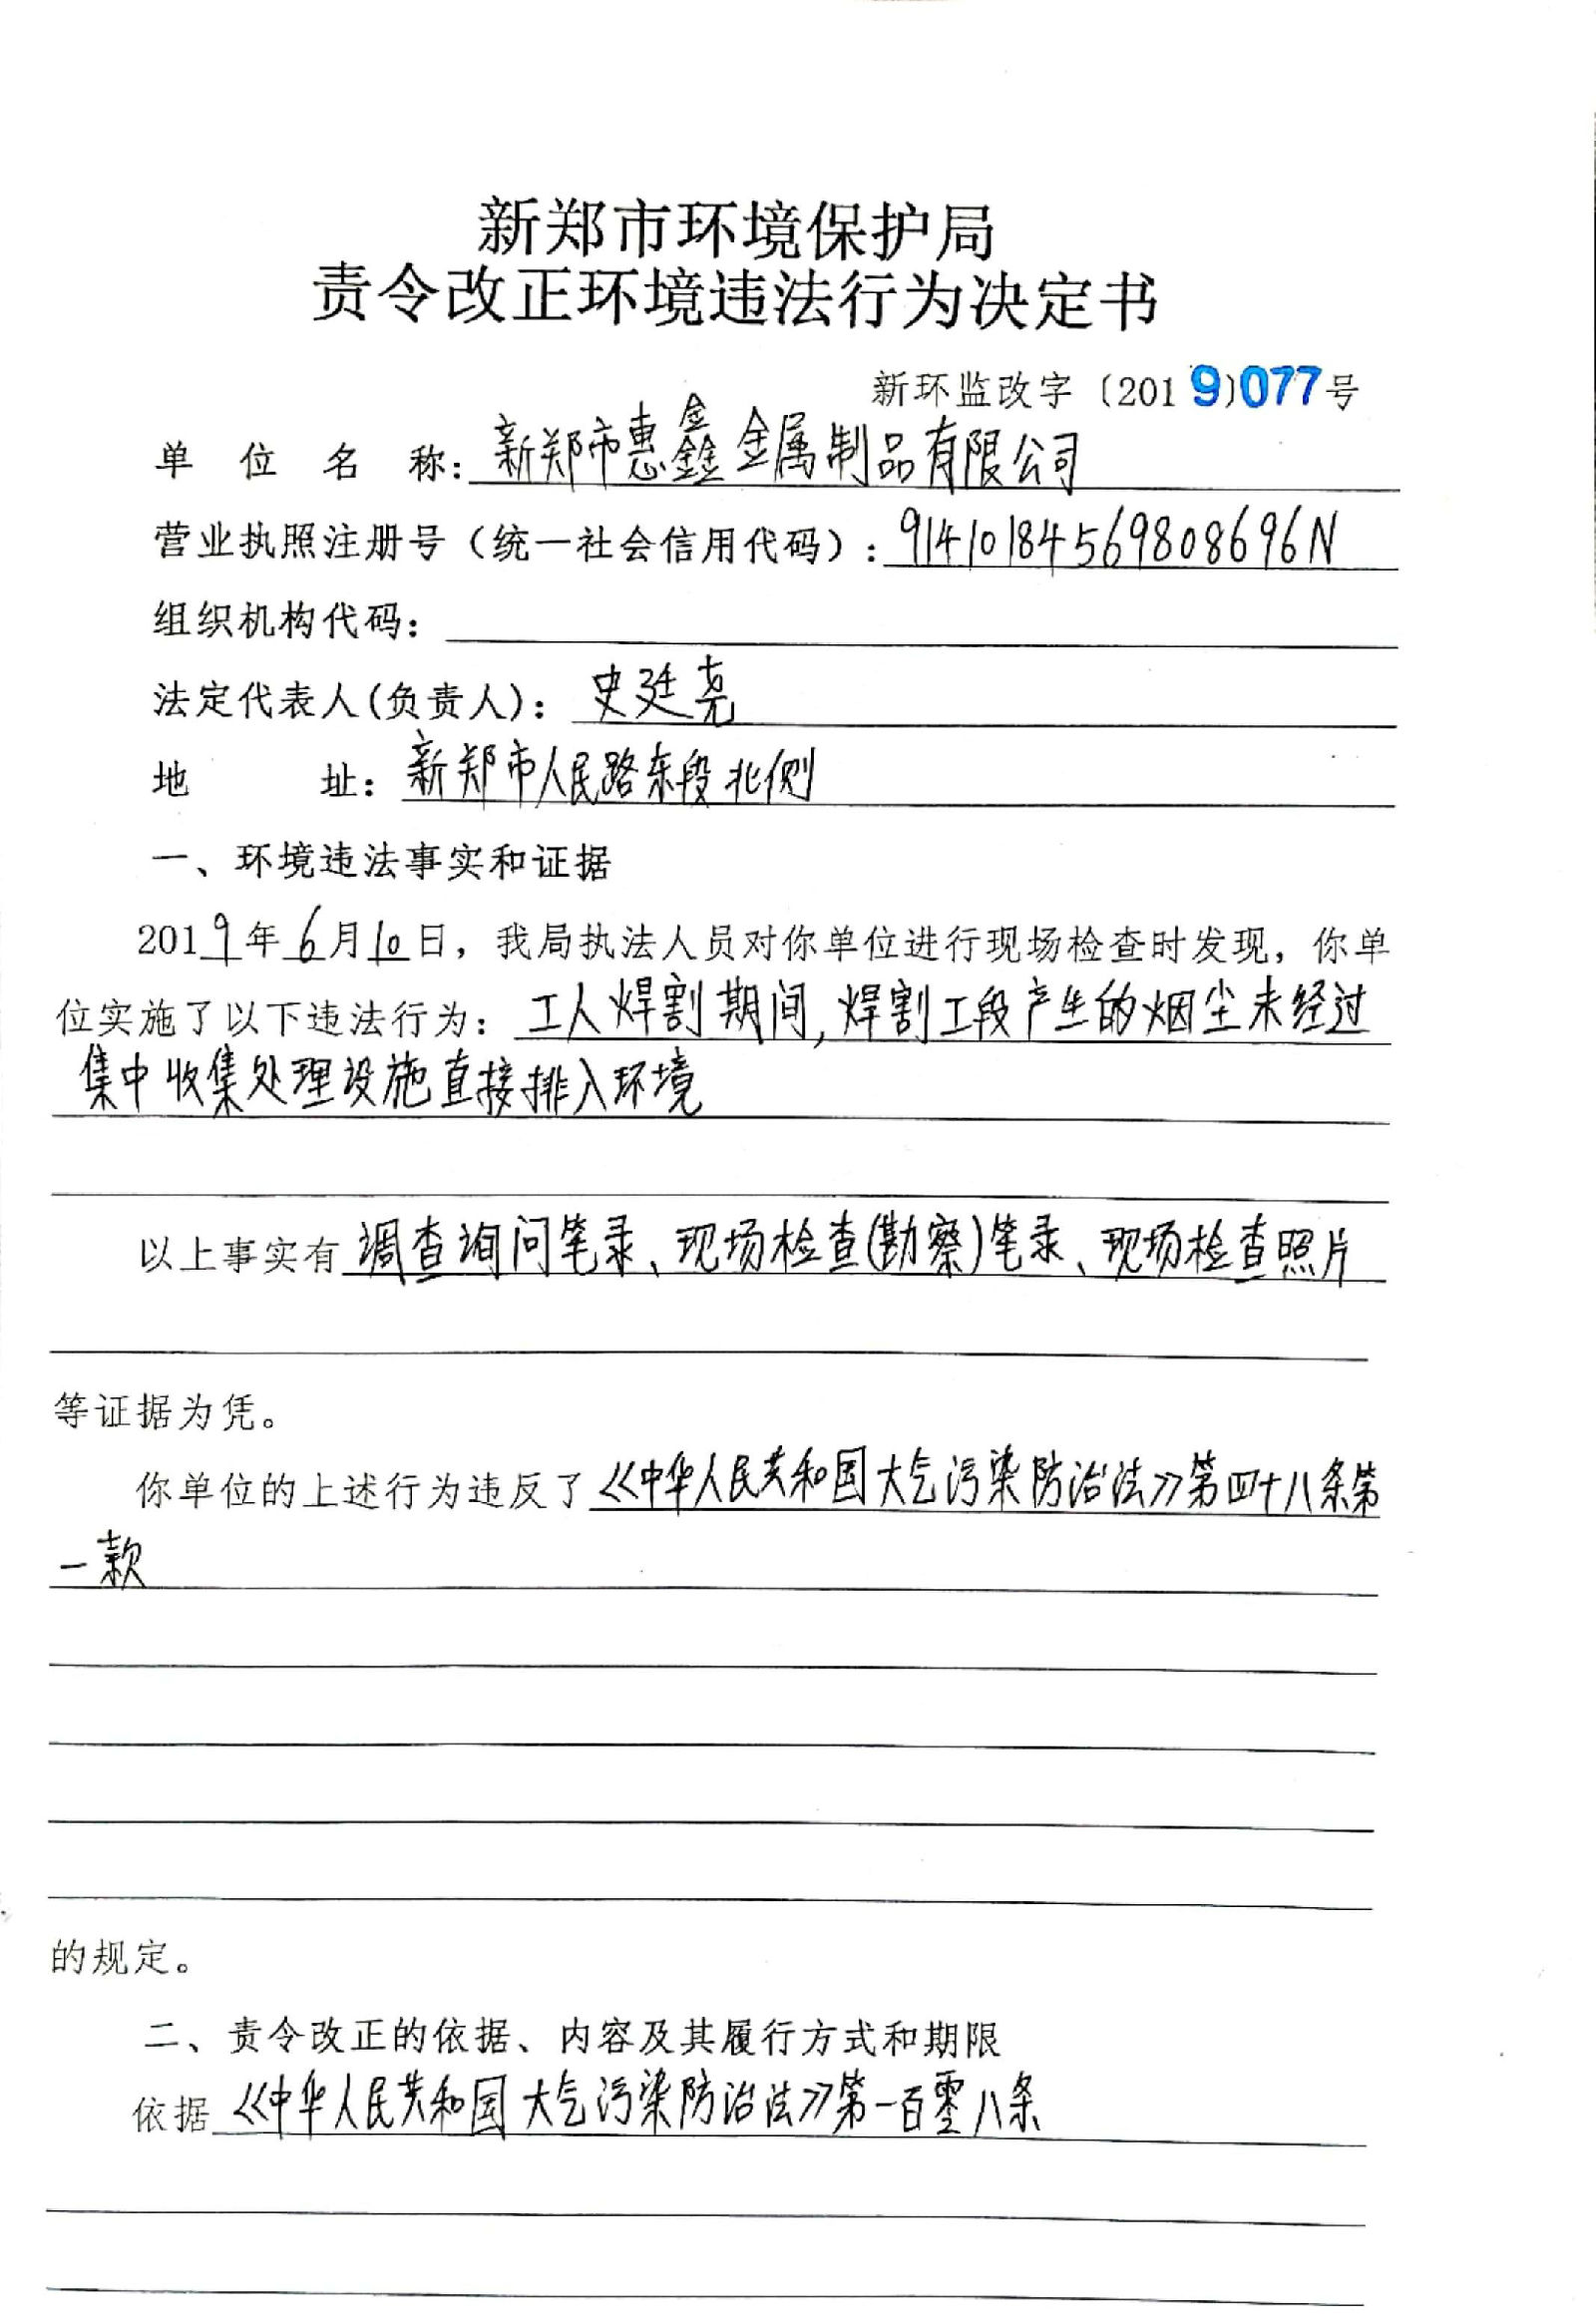 新郑市环境保护局
责令改正环境违法行为决定书
新环监改字〔2019〕077号
单位名称：新郑市惠鑫金属制品有限公司
营业执照注册号（统一社会信用代码）：914101845698086​96N
组织机构代码：
法定代表人(负责人)：史廷尧
地址：新郑市人民路东段北侧
一、环境违法事实和证据
2019年6月10日，我局执法人员对你单位进行现场检查时发现，你单
位实施了以下违法行为：工人焊割期间,焊割工段产生的烟尘未经过
集中收集处理设施直接排入环境
以上事实有调查询问笔录、现场检查(勘察)笔录、现场检查照片
等证据为凭。
你单位的上述行为违反了《中华人民共和国大气污染防治法》第四十八条第
一款
的规定。
二、责令改正的依据、内容及其履行方式和期限
依据《中华人民共和国大气污染防治法》第一百零八条